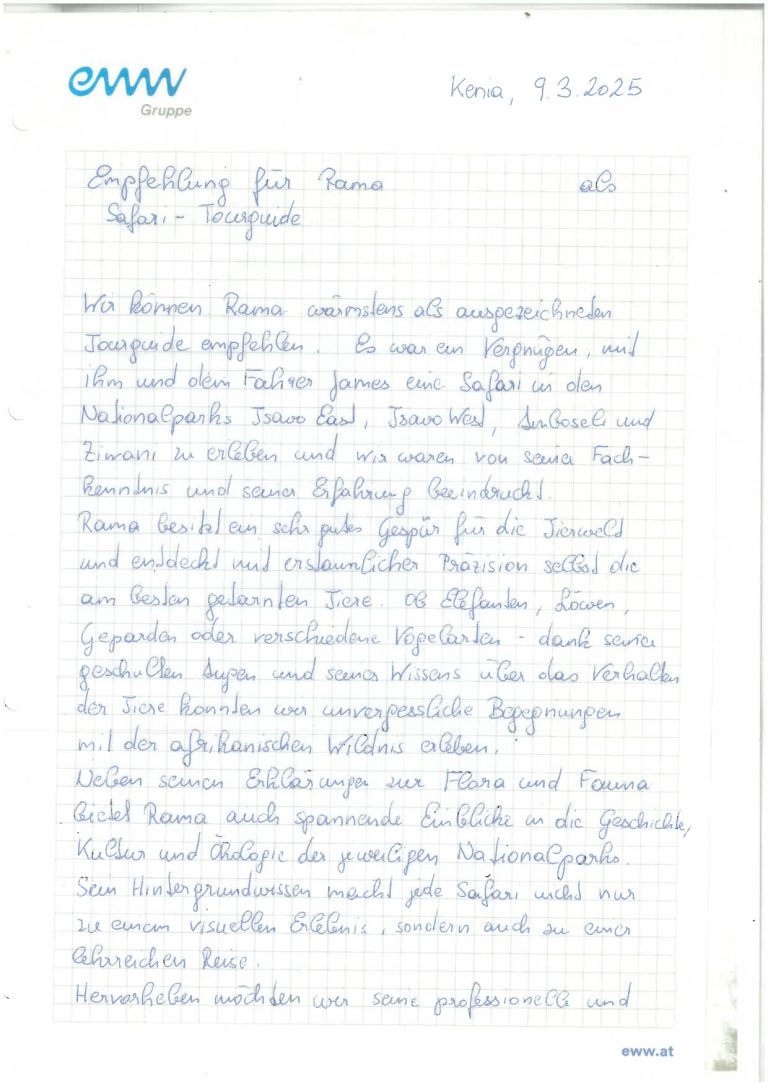 eww
Gruppe
Kenia, 9.3.2025
Empfehlung für Rama als
Safari - Tourguide
Wir können Rama wärmstens als ausgezeichneten
Tourguide empfehlen. Es war ein Vergnügen, mit
ihm und dem Fahrer James eine Safari in den
Nationalparks Tsavo East, Tsavo West, Amboseli und
Ziwani zu erleben und wir waren von seiner Fach-
kenntnis und seiner Erfahrung beeindruckt.
Rama besitzt ein sehr gutes Gespür für die Tierwelt
und entdeckt mit erstaunlicher Präzision selbst die
am besten getarnten Tiere. Ob Elefanten, Löwen,
Geparden oder verschiedene Vogelarten - dank seiner
geschulten Augen und seines Wissens über das Verhalten
der Tiere konnten wir unvergessliche Begegnungen
mit der afrikanischen Wildnis erleben.
Neben seinen Erklärungen zur Flora und Fauna
bietet Rama auch spannende Einblicke in die Geschichte,
Kultur und Ökologie der jeweiligen Nationalparks.
Sein Hintergrundwissen macht jede Safari nicht nur
zu einem visuellen Erlebnis, sondern auch zu einer
lehrreichen Reise.
Hervorheben möchten wir seine professionelle und
eww.at